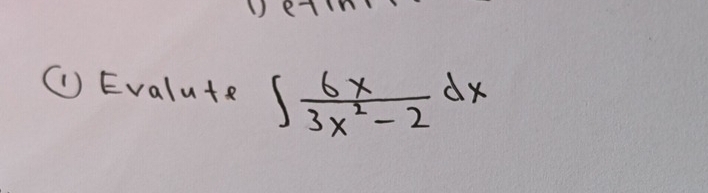 ① Evalute ∫ 6x / (3x² - 2) dx